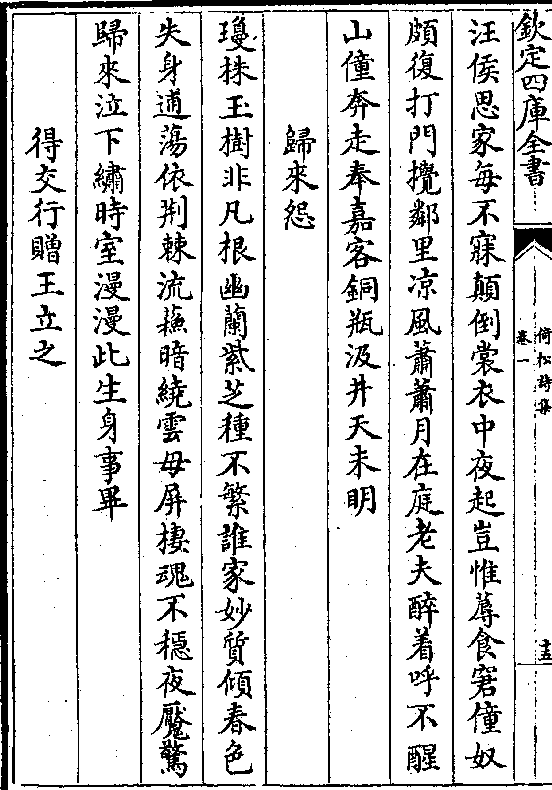 欽定四庫全書
倚松詩集
卷一
十五
汪侯思家每不寐顛倒裳衣中夜起豈惟蓐食窘僮奴
頗復打門攪鄰里凉風蕭蕭月在庭老夫醉着呼不醒
山僮奔走奉嘉客銅瓶汲井天未明
歸來怨
瓊株玉樹非凡根幽蘭紫芝種不繁誰家妙質傾春色
失身逋蕩依荆棘流蘇暗繞雲母屏棲魂不穩夜魘驚
歸來泣下繡時室漫漫此生身事畢
得交行贈王立之